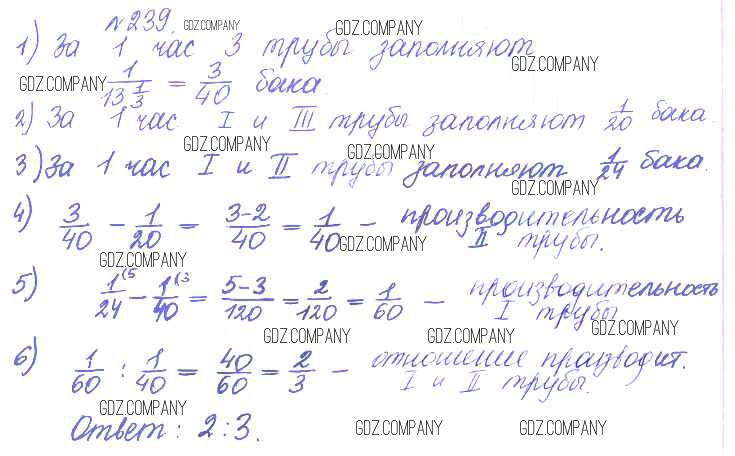 №239. GDZ.COMPANY GDZ.COMPANY
1) За 1 час 3 трубы заполняют GDZ.COMPANY
GDZ.COMPANY 1/13 1/3 = 3/40 бака
2) За 1 час I и III трубы заполняют 1/20 бака.
GDZ.COMPANY GDZ.COMPANY
3) За 1 час I и II трубы заполняют 1/24 бака.
GDZ.COMPANY
4) 3/40 - 1/20 = 3-2/40 = 1/40 - производительность
GDZ.COMPANY II трубы.
GDZ.COMPANY
5) 1(5/24 - 1(3/40 = 5-3/120 = 2/120 = 1/60 - производительность
I трубы GDZ.COMPANY
GDZ.COMPANY GDZ.COMPANY
6) 1/60 : 1/40 = 40/60 = 2/3 - отношение производит.
I и II трубы.
GDZ.COMPANY
Ответ: 2:3. GDZ.COMPANY GDZ.COMPANY